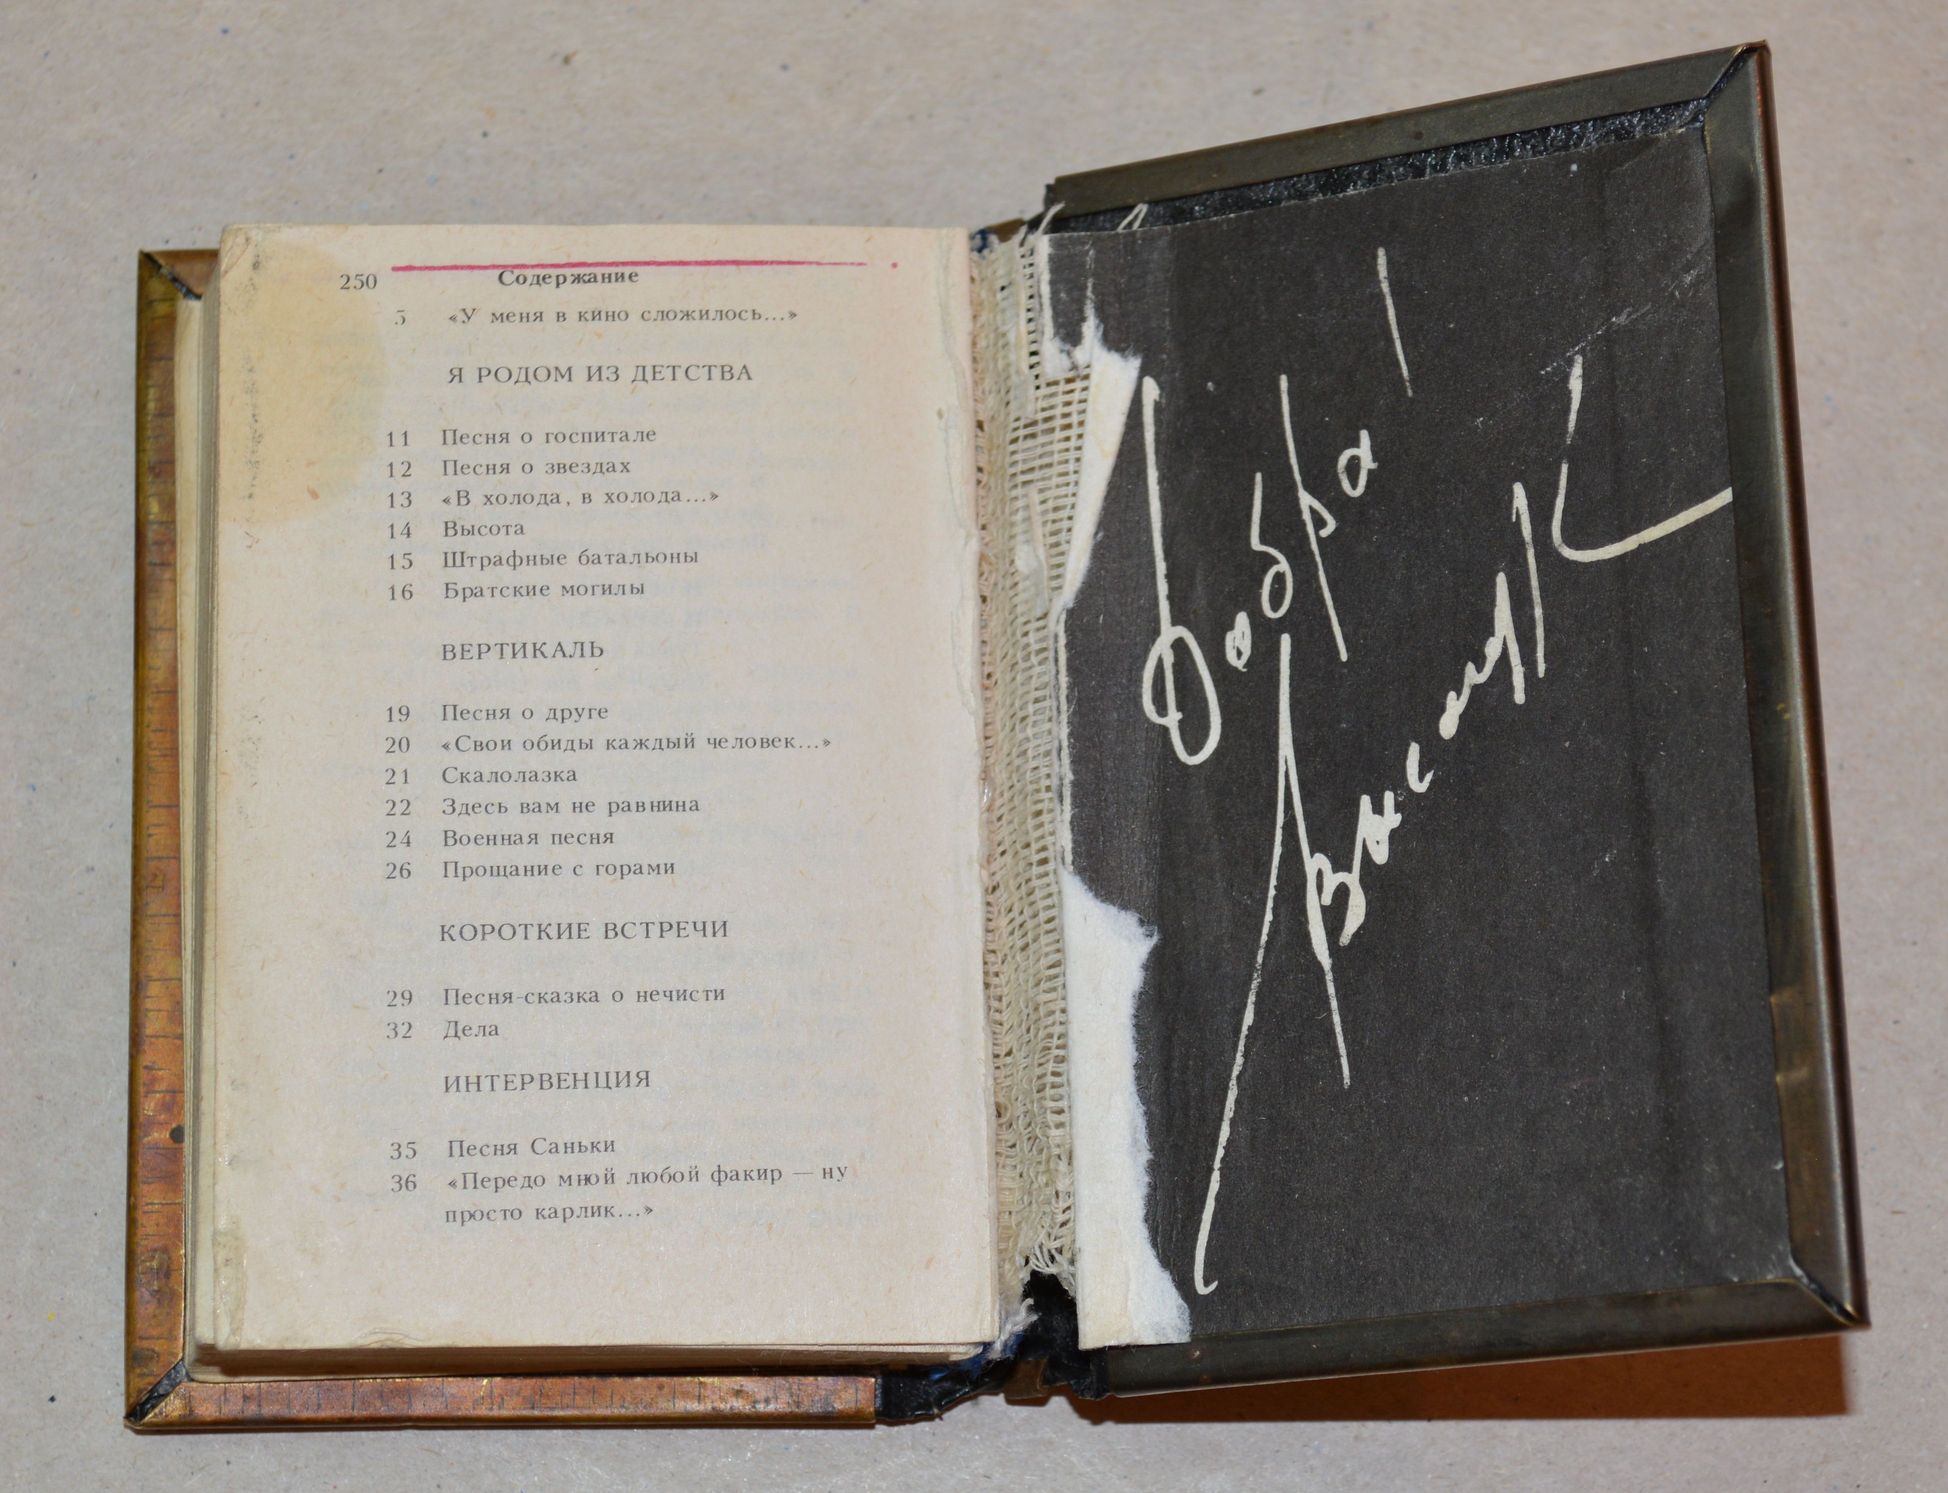 250 Содержание
5 «У меня в кино сложилось...»
Я РОДОМ ИЗ ДЕТСТВА
11 Песня о госпитале
12 Песня о звездах
13 «В холода, в холода...»
14 Высота
15 Штрафные батальоны
16 Братские могилы
ВЕРТИКАЛЬ
19 Песня о друге
20 «Свои обиды каждый человек...»
21 Скалолазка
22 Здесь вам не равнина
24 Военная песня
26 Прощание с горами
КОРОТКИЕ ВСТРЕЧИ
29 Песня-сказка о нечисти
32 Дела
ИНТЕРВЕНЦИЯ
35 Песня Саньки
36 «Передо мной любой факир — ну
просто карлик...»
Добра!